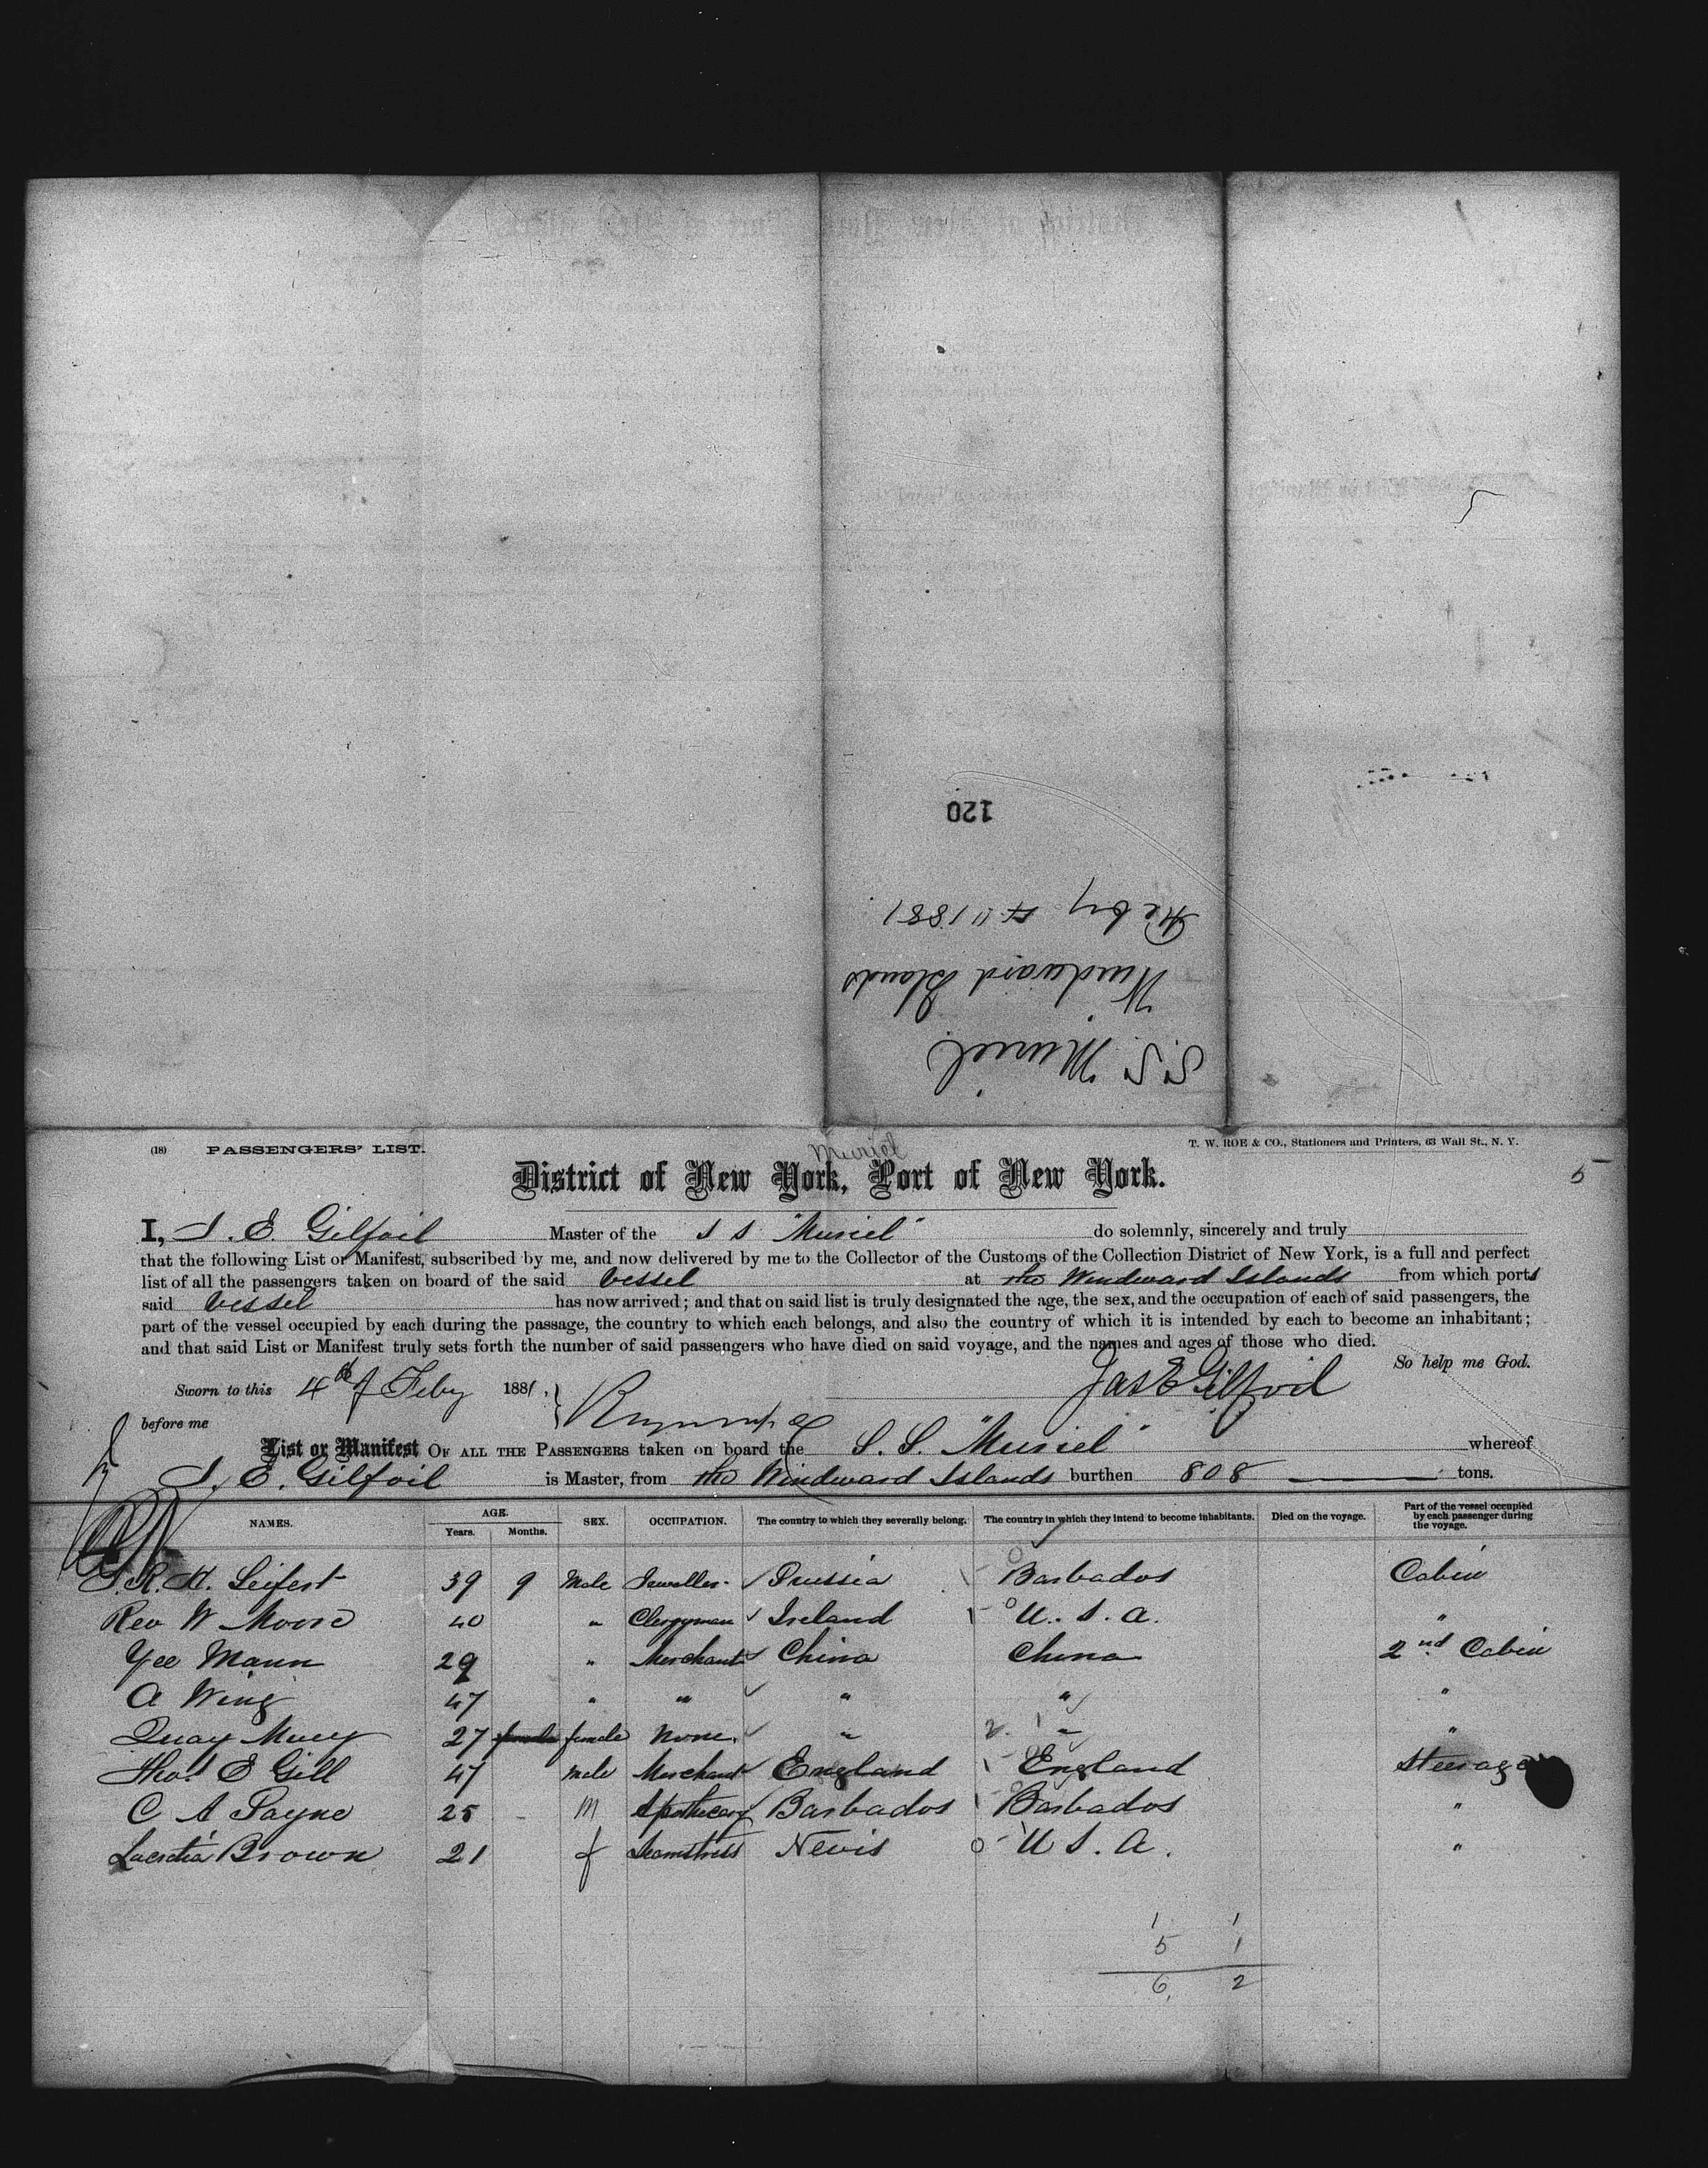 120
Feby 4" 1881
Windward Islands
S.S. Muriel
(18) PASSENGERS' LIST.
T. W. ROE & CO., Stationers and Printers, 63 Wall St., N. Y.
Muriel
5
District of New York, Port of New York.
I, J. E. Gilfoil Master of the S S "Muriel" do solemnly, sincerely and truly
that the following List or Manifest, subscribed by me, and now delivered by me to the Collector of the Customs of the Collection District of New York, is a full and perfect
list of all the passengers taken on board of the said vessel at the Windward Islands from which ports
said vessel has now arrived; and that on said list is truly designated the age, the sex, and the occupation of each of said passengers, the
part of the vessel occupied by each during the passage, the country to which each belongs, and also the country of which it is intended by each to become an inhabitant;
and that said List or Manifest truly sets forth the number of said passengers who have died on said voyage, and the names and ages of those who died.
So help me God.
Sworn to this 4th of Feby 1881, Jas E Gilfoil
before me
List or Manifest OF ALL THE PASSENGERS taken on board the S. S. "Muriel" whereof
J. E. Gilfoil is Master, from the Windward Islands burthen 808 tons.
NAMES. AGE. Years. Months. SEX. OCCUPATION. The country to which they severally belong. The country in which they intend to become inhabitants. Died on the voyage. Part of the vessel occupied by each passenger during the voyage.
R. H. Seifert 39 9 Male Jeweller Prussia Barbados Cabin
Rev W Moore 40 " Clergyman Ireland U. S. A. "
Yee Mann 29 " Merchant China China 2nd Cabin
A Wing 47 " " " " "
Quay Muey 27 female female None. " " "
Thos E Gill 47 male Merchant England England Steerage
C A Payne 25 - M Apothecary Barbados Barbados "
Lucretia Brown 21 f Seamstress Nevis U S. A. "
1 1
5 1
6 2